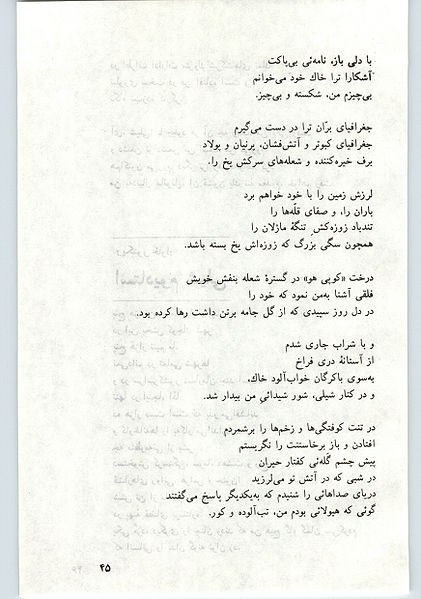 با دلی باز، نامه‌ئی بی‌باکت
آشکارا ترا خاك خود می‌خوانم
بی‌چیزم من، شکسته و بی‌چیز.
جغرافیای برّان ترا در دست می‌گیرم
جغرافیای کبوتر و آتش‌فشان، پرنیان و پولاد
برف خیره‌کننده و شعله‌های سرکش یخ را.
لرزش زمین را با خود خواهم برد
باران را، و صفای قلّه‌ها را
تندباد زوزه‌کش تنگهٔ ماژلان را
همچون سگی بزرگ که زوزه‌اش یخ بسته باشد.
درخت «کوپی هو» در گسترهٔ شعله بنفش خویش
فلقی آشنا به‌من نمود که خود را
در دل روز سپیدی که از گل جامه برتن داشت رها کرده بود.
و با شراب جاری شدم
از آستانهٔ دری فراخ
به‌سوی باکرگان خواب‌آلود خاك،
و در کنار شیلی، شور شیدائی من بیدار شد.
در تنت کوفتگی‌ها و زخم‌ها را برشمردم
افتادن و باز برخاستنت را نگریستم
پیش چشم گله‌ئی کفتار حیران
در شبی که در آتش تو می‌لرزید
دریای صداهائی را شنیدم که به‌یکدیگر پاسخ می‌گفتند
گوئی که هیولائی بودم من، تب‌آلوده و کور.
۴۵